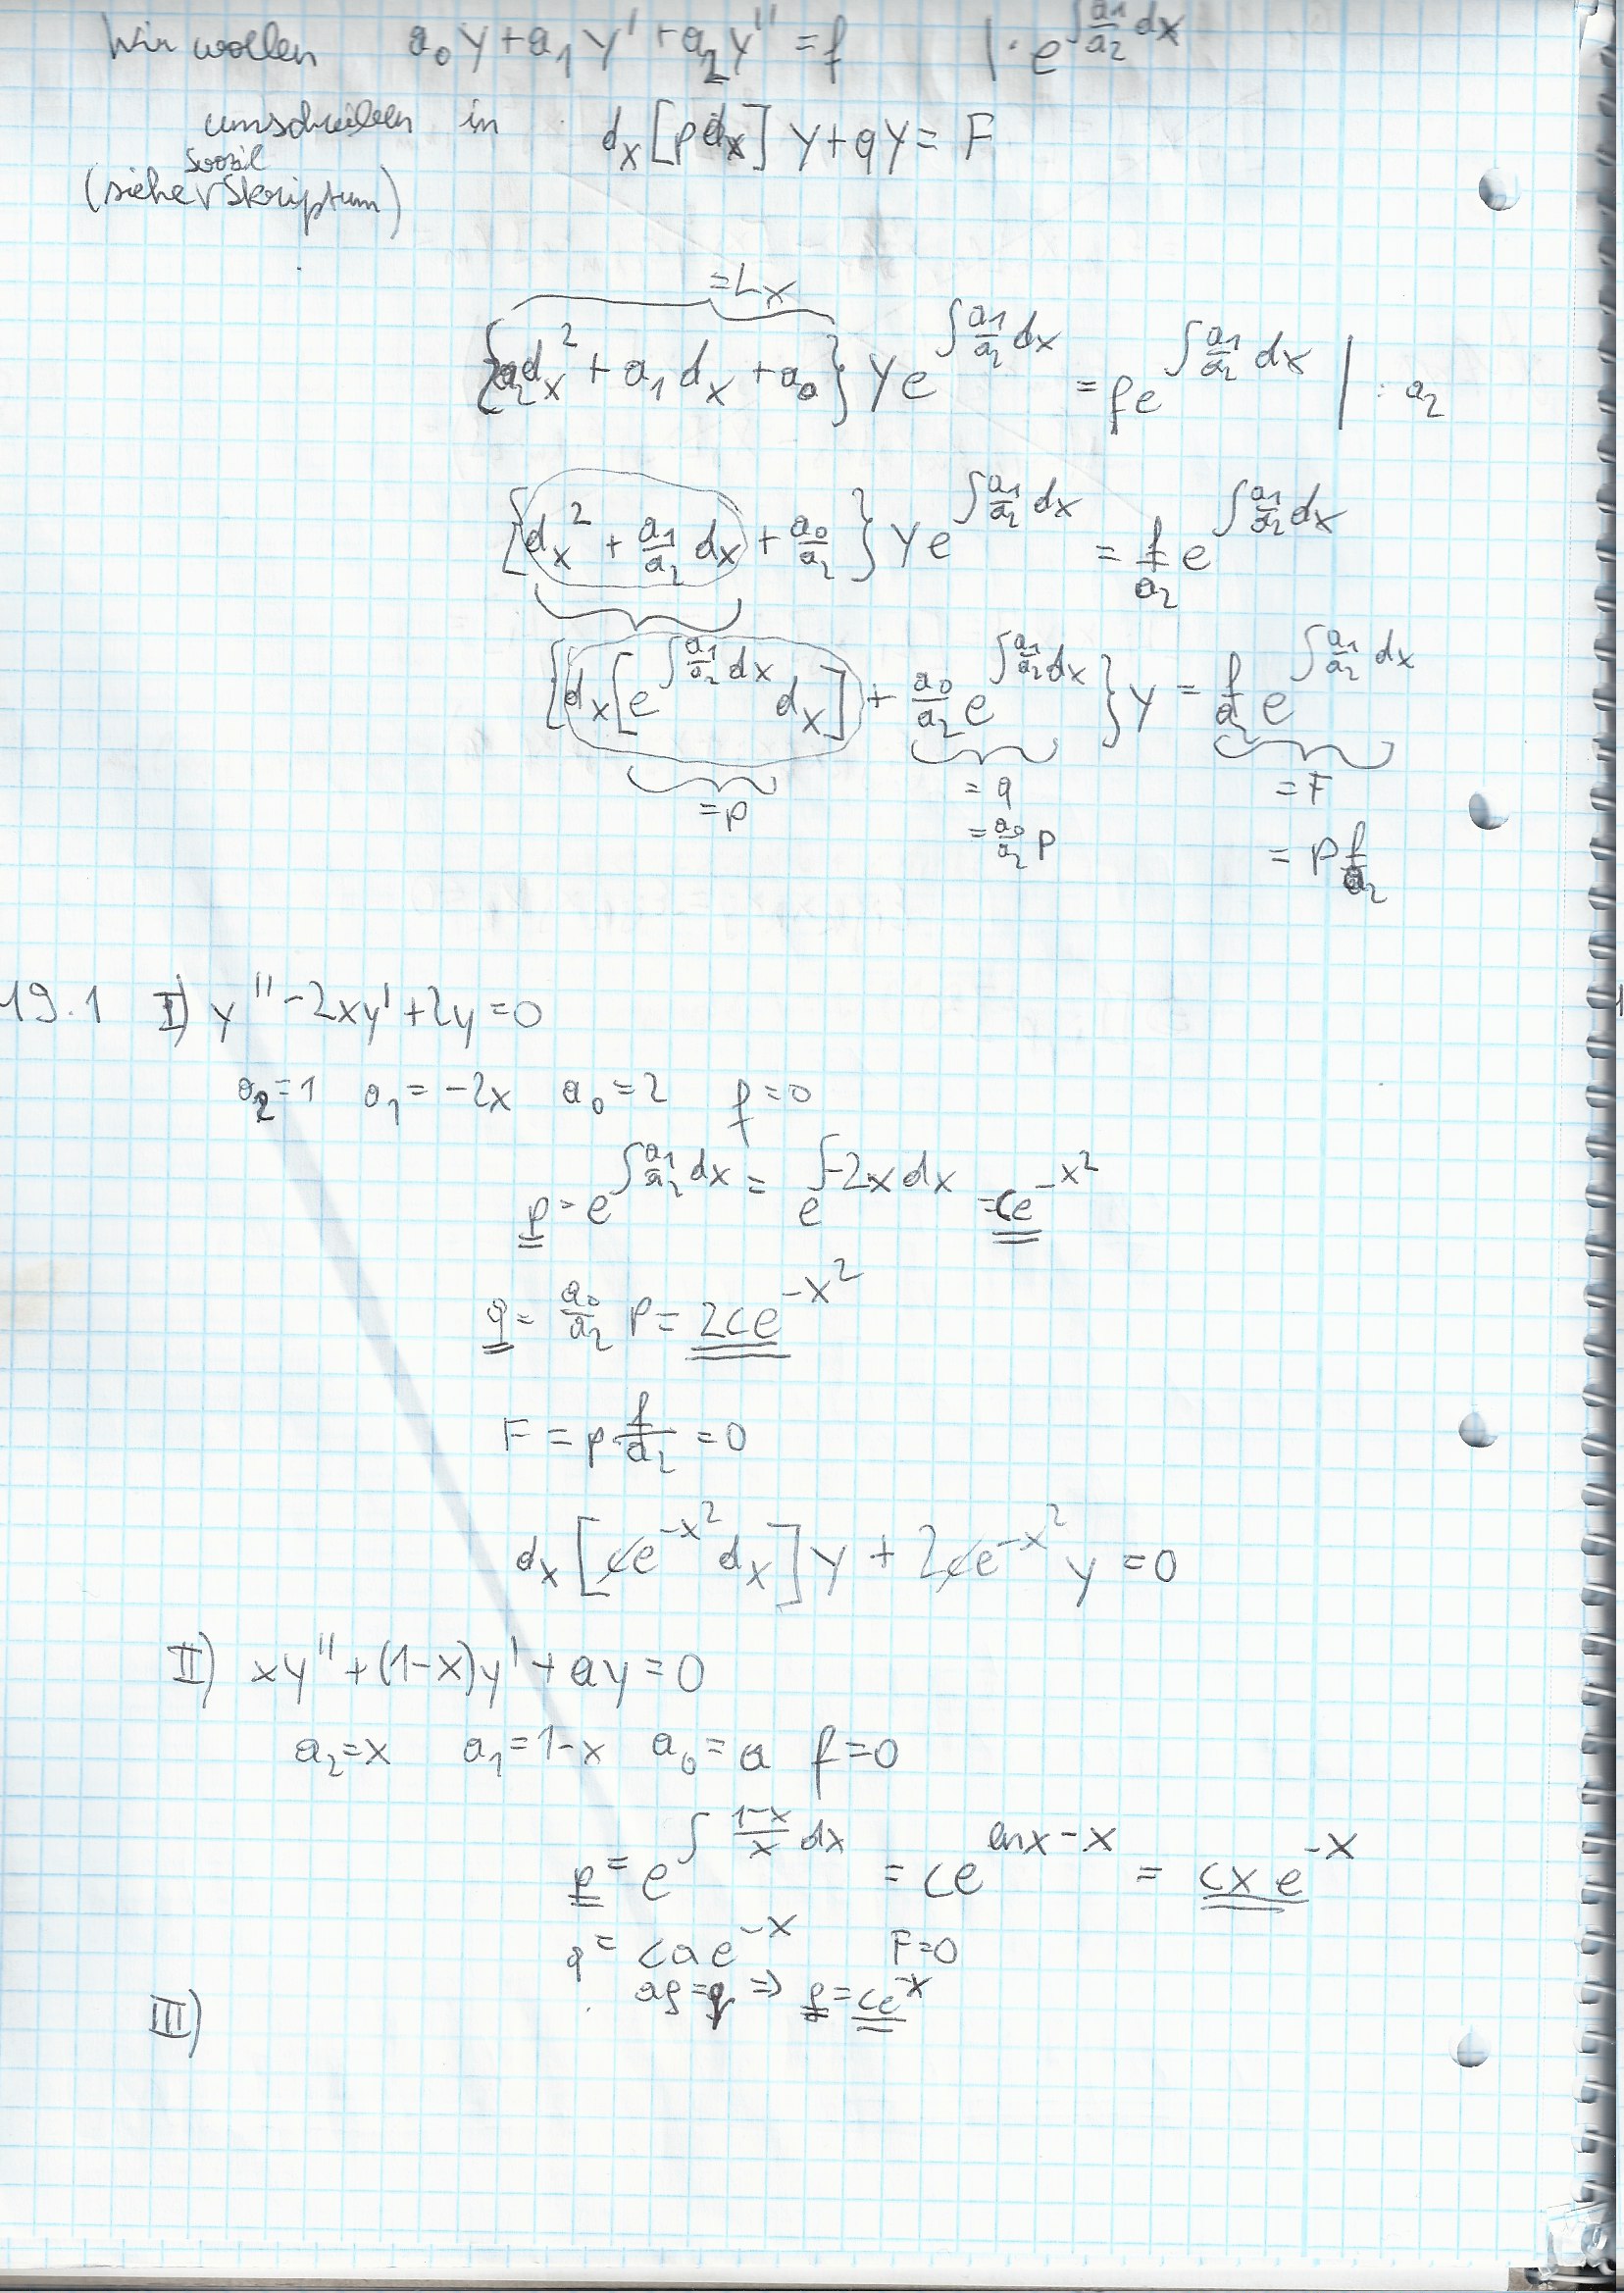 Wir wollen a₀y + a₁y' + a₂y'' = f | · e^{∫ a₁/a₂ dx}
umschreiben in d_x [p d_x] y + qy = F
(siehe Svozil Skriptum)
= L_x
{a₂d_x² + a₁d_x + a₀} y e^{∫ a₁/a₂ dx} = f e^{∫ a₁/a₂ dx} | : a₂
{d_x² + a₁/a₂ d_x + a₀/a₂} y e^{∫ a₁/a₂ dx} = f/a₂ e^{∫ a₁/a₂ dx}
{d_x [e^{∫ a₁/a₂ dx} d_x] + a₀/a₂ e^{∫ a₁/a₂ dx}} y = f/a₂ e^{∫ a₁/a₂ dx}
= p = q = F
= a₀/a₂ p = p f/a₂
19.1 I) y'' - 2xy' + 2y = 0
a₂ = 1 a₁ = -2x a₀ = 2 f = 0
p = e^{∫ a₁/a₂ dx} = e^{∫ -2x dx} = ce^{-x²}
q = a₀/a₂ p = 2ce^{-x²}
F = p · f/a₂ = 0
d_x [ce^{-x²} d_x] y + 2ce^{-x²} y = 0
II) xy'' + (1-x)y' + ay = 0
a₂ = x a₁ = 1-x a₀ = a f = 0
p = e^{∫ (1-x)/x dx} = ce^{ln x - x} = cx e^{-x}
q = cae^{-x} F = 0
aρ = q ⇒ ρ = ce^{-x}
III)